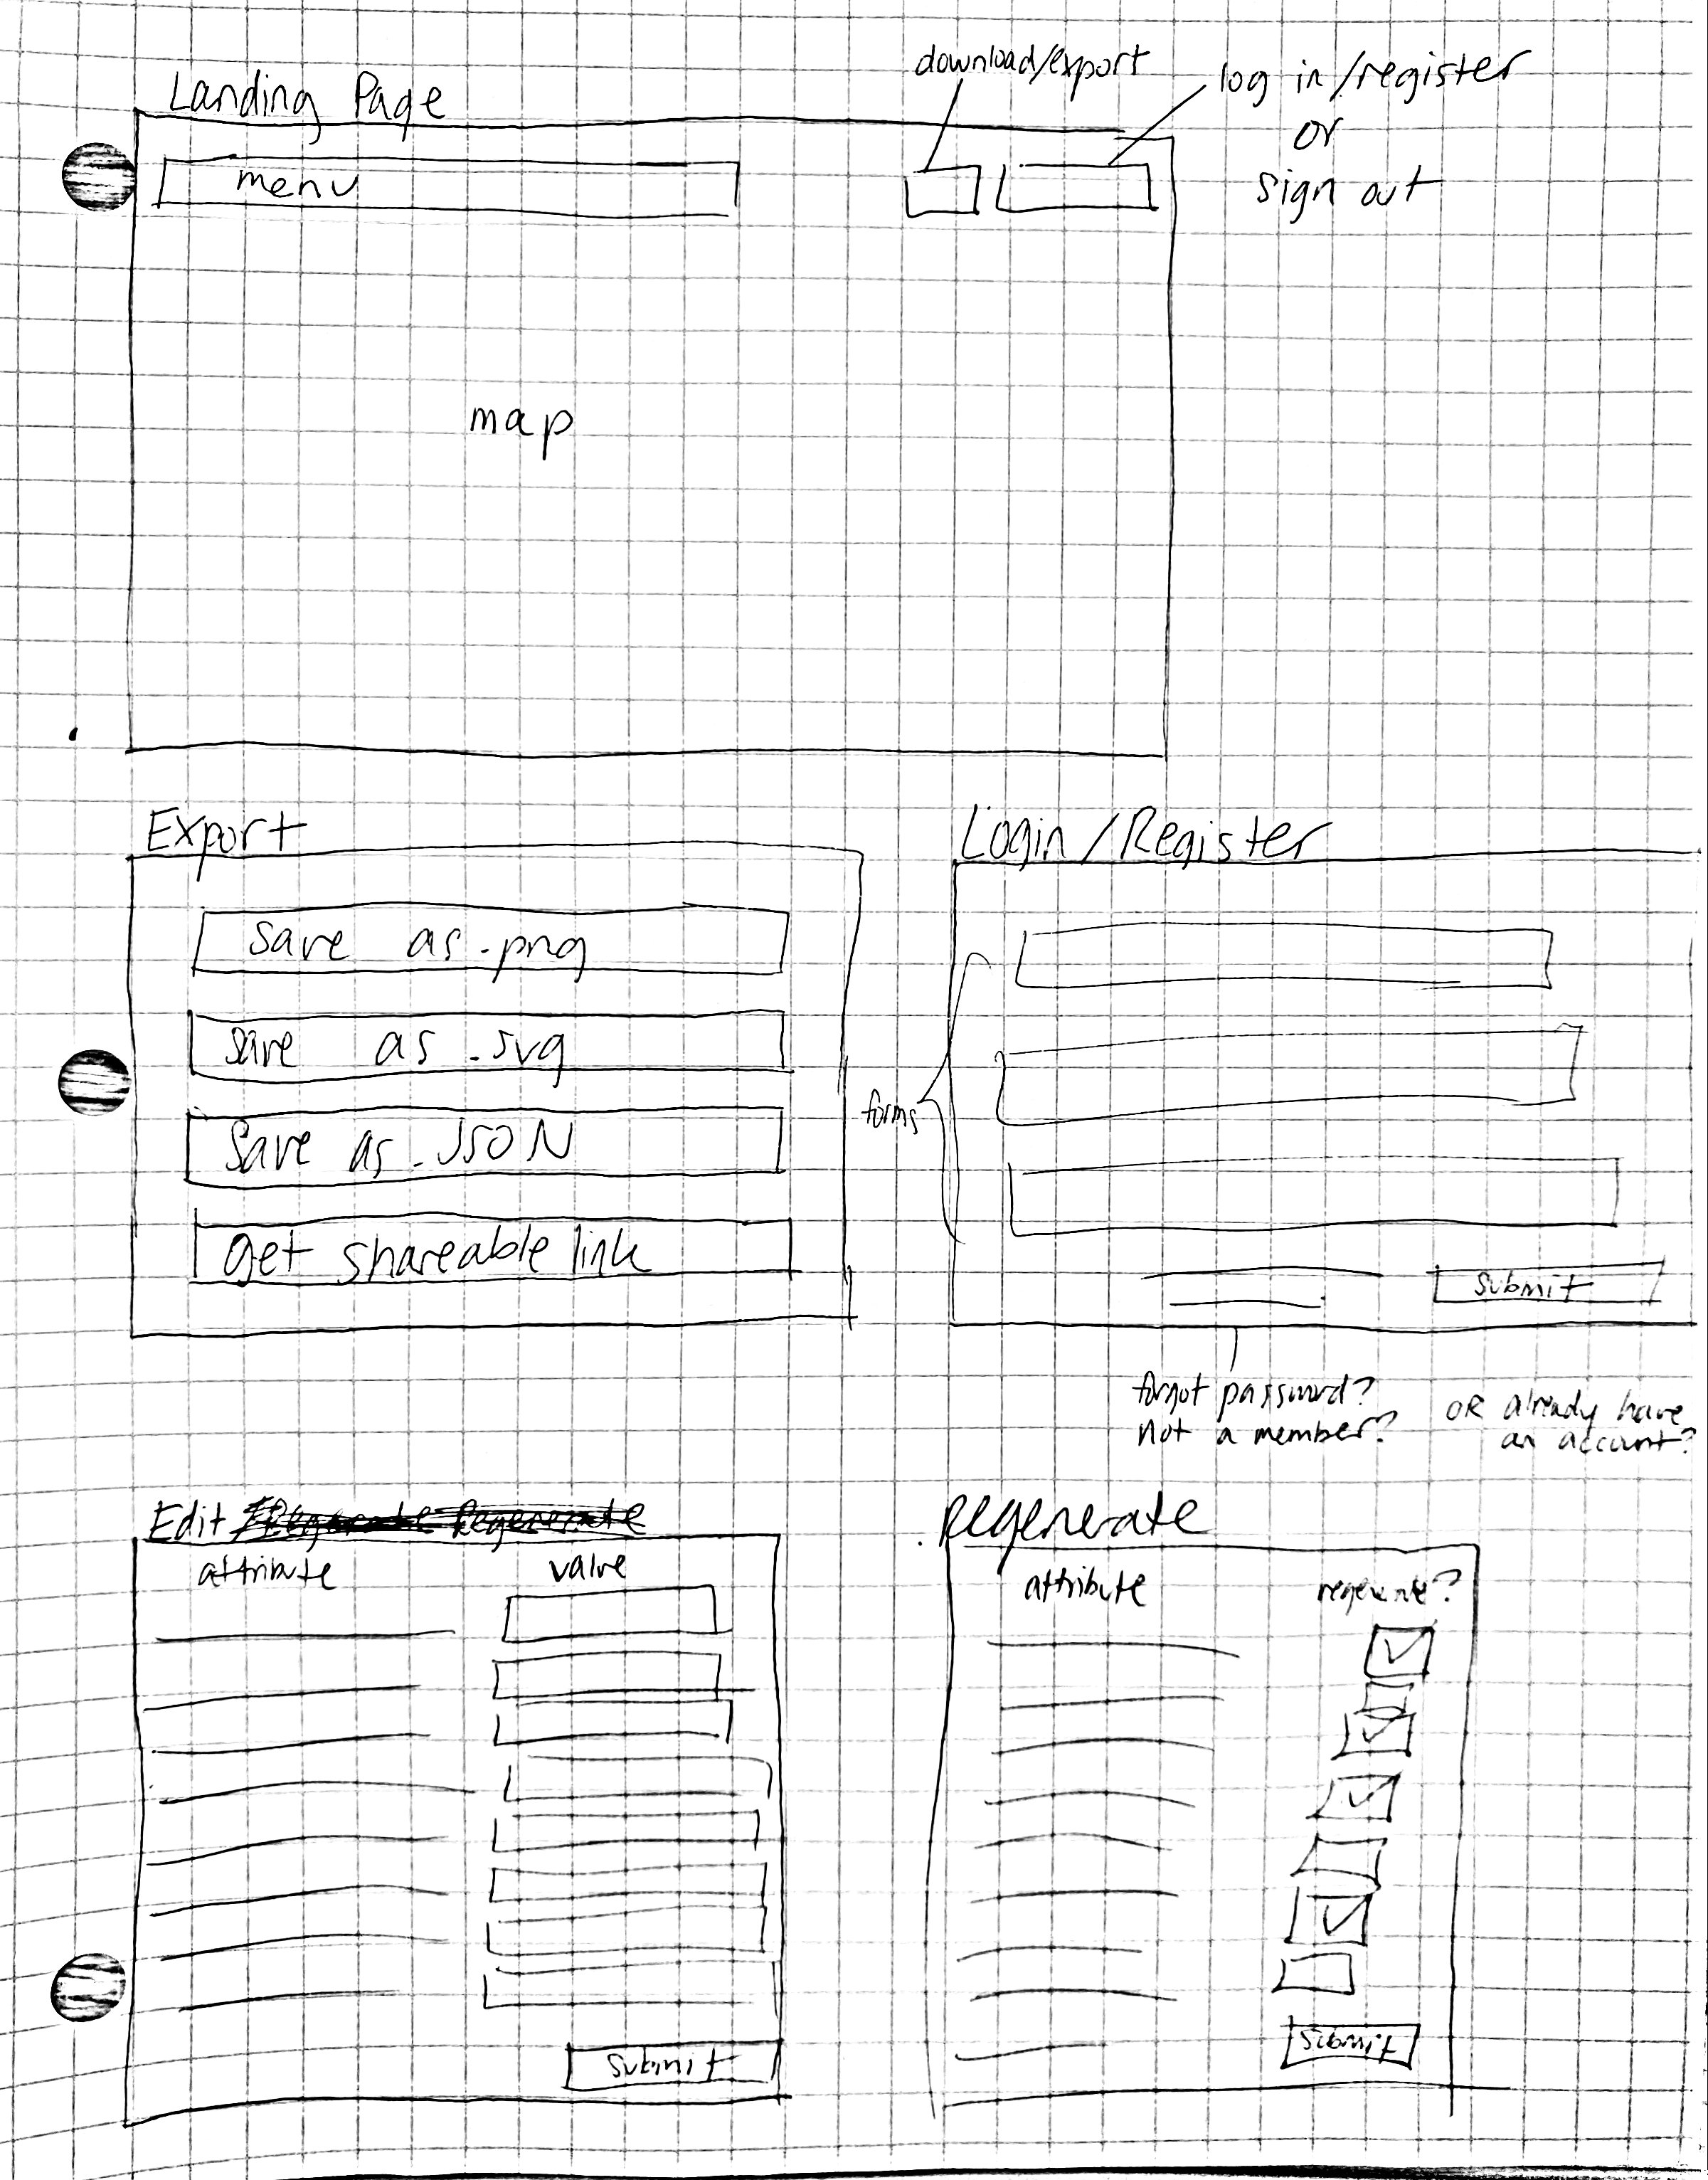 Landing Page
download/export
log in/register
or
sign out
menu
map
Export
Save as .png
Save as .svg
Save as .JSON
Get shareable link
Login/Register
forms
submit
forgot password?
Not a member?
OR already have
an account?
Edit
attribute value
submit
Regenerate
attribute regenerate?
submit